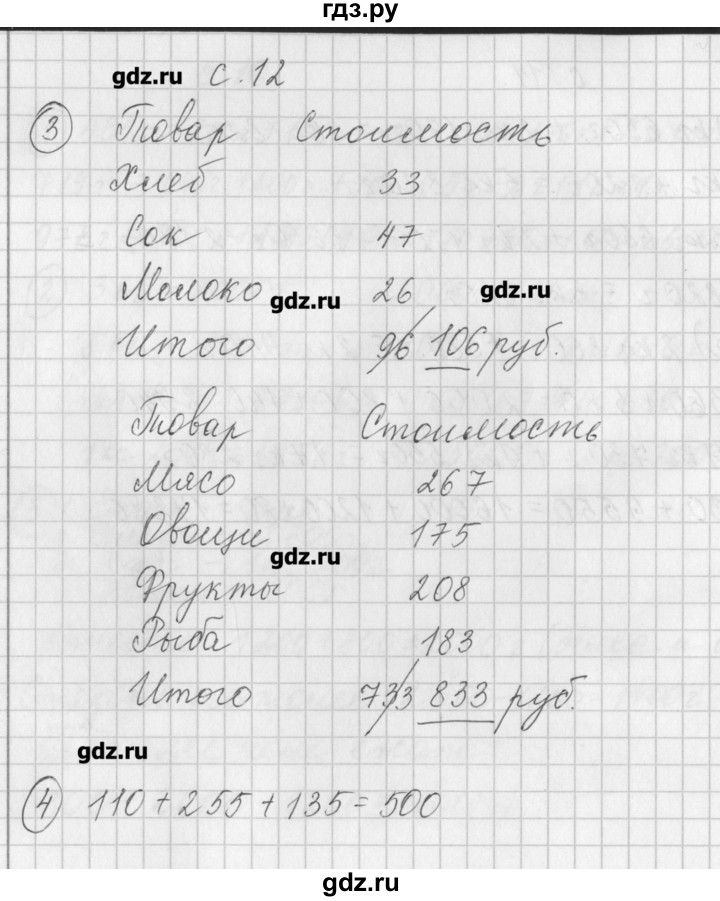 гдз.ру
gdz.ru с. 12
3 Товар Стоимость
Хлеб 33
Сок 47
Молоко 26
gdz.ru gdz.ru
Итого 96 106 руб.
Товар Стоимость
Мясо 267
Овощи 175
gdz.ru
Фрукты 208
Рыба 183
Итого 733 833 руб.
gdz.ru
4 110 + 255 + 135 = 500
gdz.ru